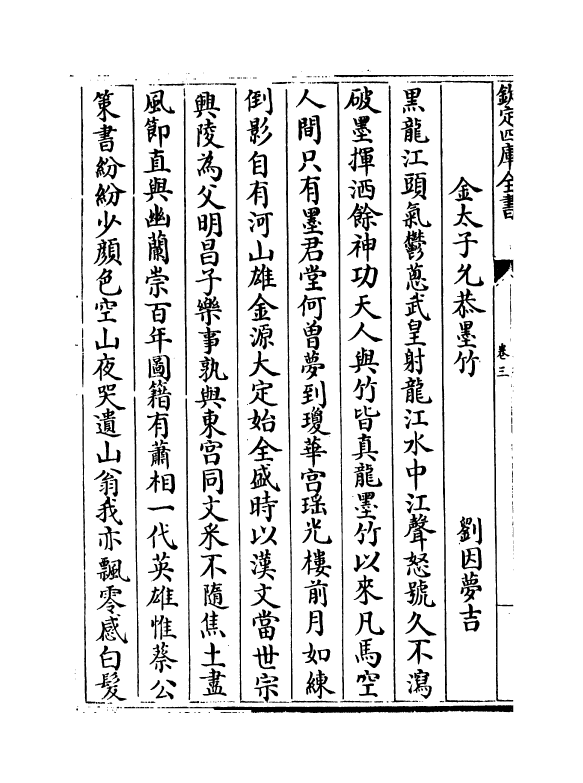 欽定四庫全書
卷三
金太子允恭墨竹　劉因夢吉
黑龍江頭氣鬱蔥武皇射龍江水中江聲怒號久不瀉
破墨揮洒餘神功天人與竹皆真龍墨竹以來凡馬空
人間只有墨君堂何曾夢到瓊華宮瑶光樓前月如練
倒影自有河山雄金源大定始全盛時以漢文當世宗
興陵為父明昌子樂事孰與東宮同文采不隨焦土盡
風節直與幽蘭崇百年圖籍有蕭相一代英雄惟蔡公
策書紛紛少顔色空山夜哭遺山翁我亦飄零感白髮